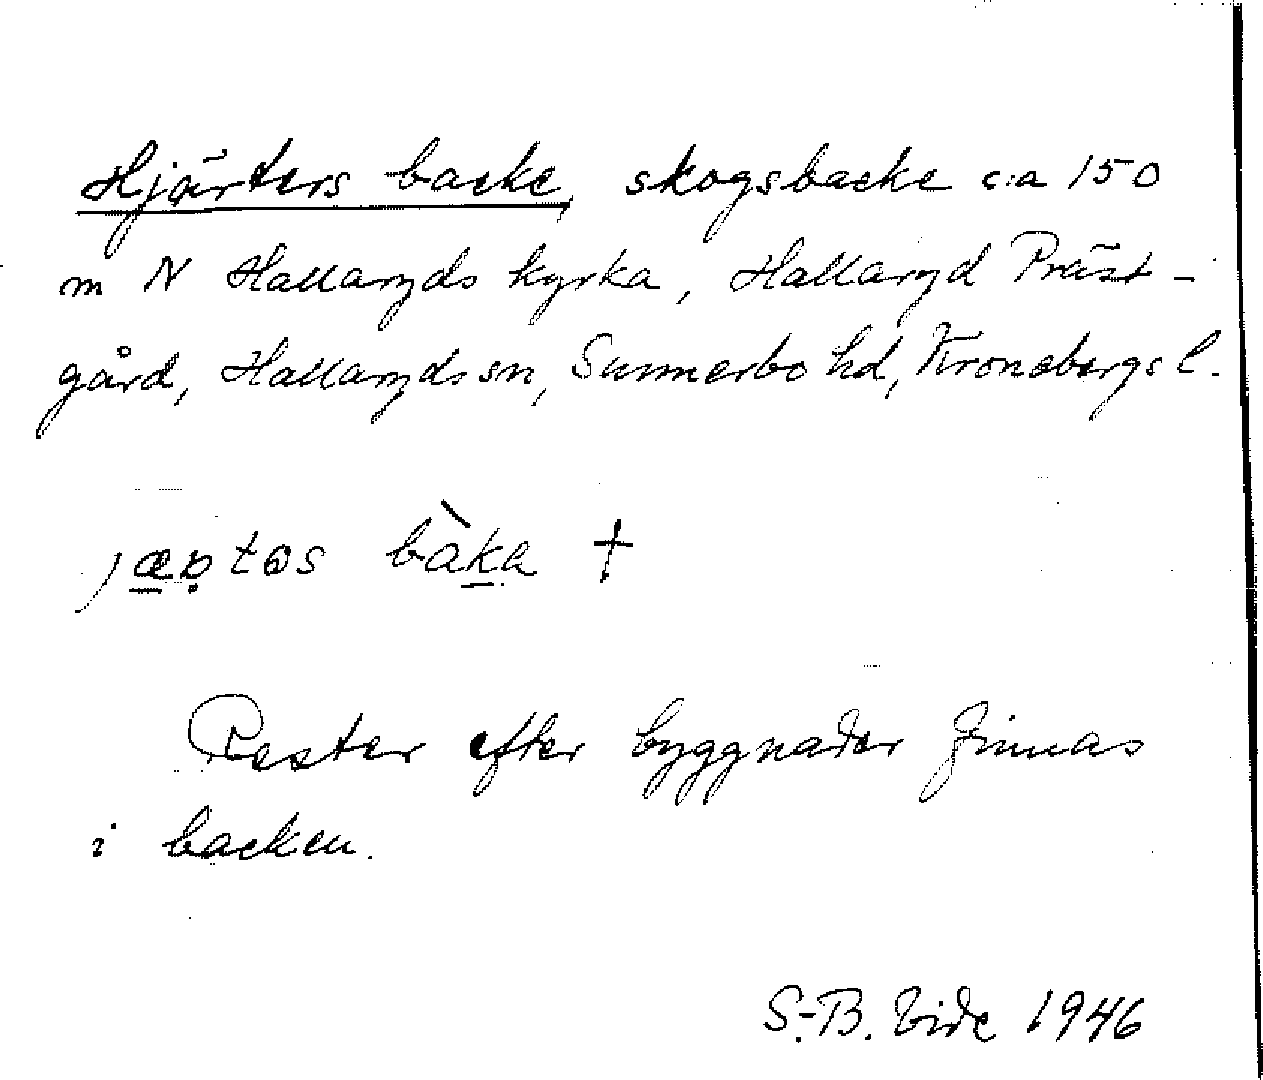 Hjärters backe, skogsbacke c:a 150
m N Hallaryds kyrka, Hallaryd Präst-
gård, Hallaryds sn, Sunnerbo hd, Kronobergs l.
bàka +
Rester efter byggnader finnas
i backen.
S.-B. Vide 1946